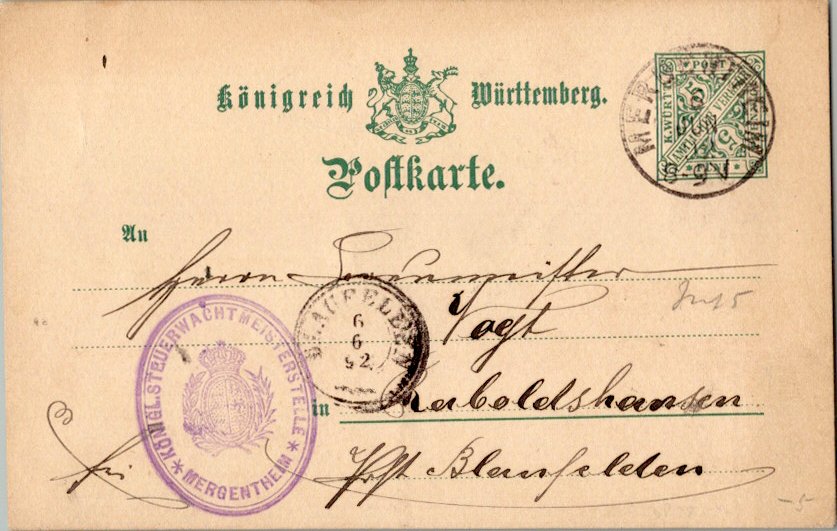 Königreich Württemberg.
Postkarte.
K. WÜRTT. POST
AMTLICHER VERKEHR
5
MERGENTHEIM
6
JUN
8-9 V
An
Herrn
Vogt
in Raboldshausen
Post Blaufelden
BLAUFELDEN
6
6
92
KÖNIGL. STEUERWACHTMEISTERSTELLE
* MERGENTHEIM *
5